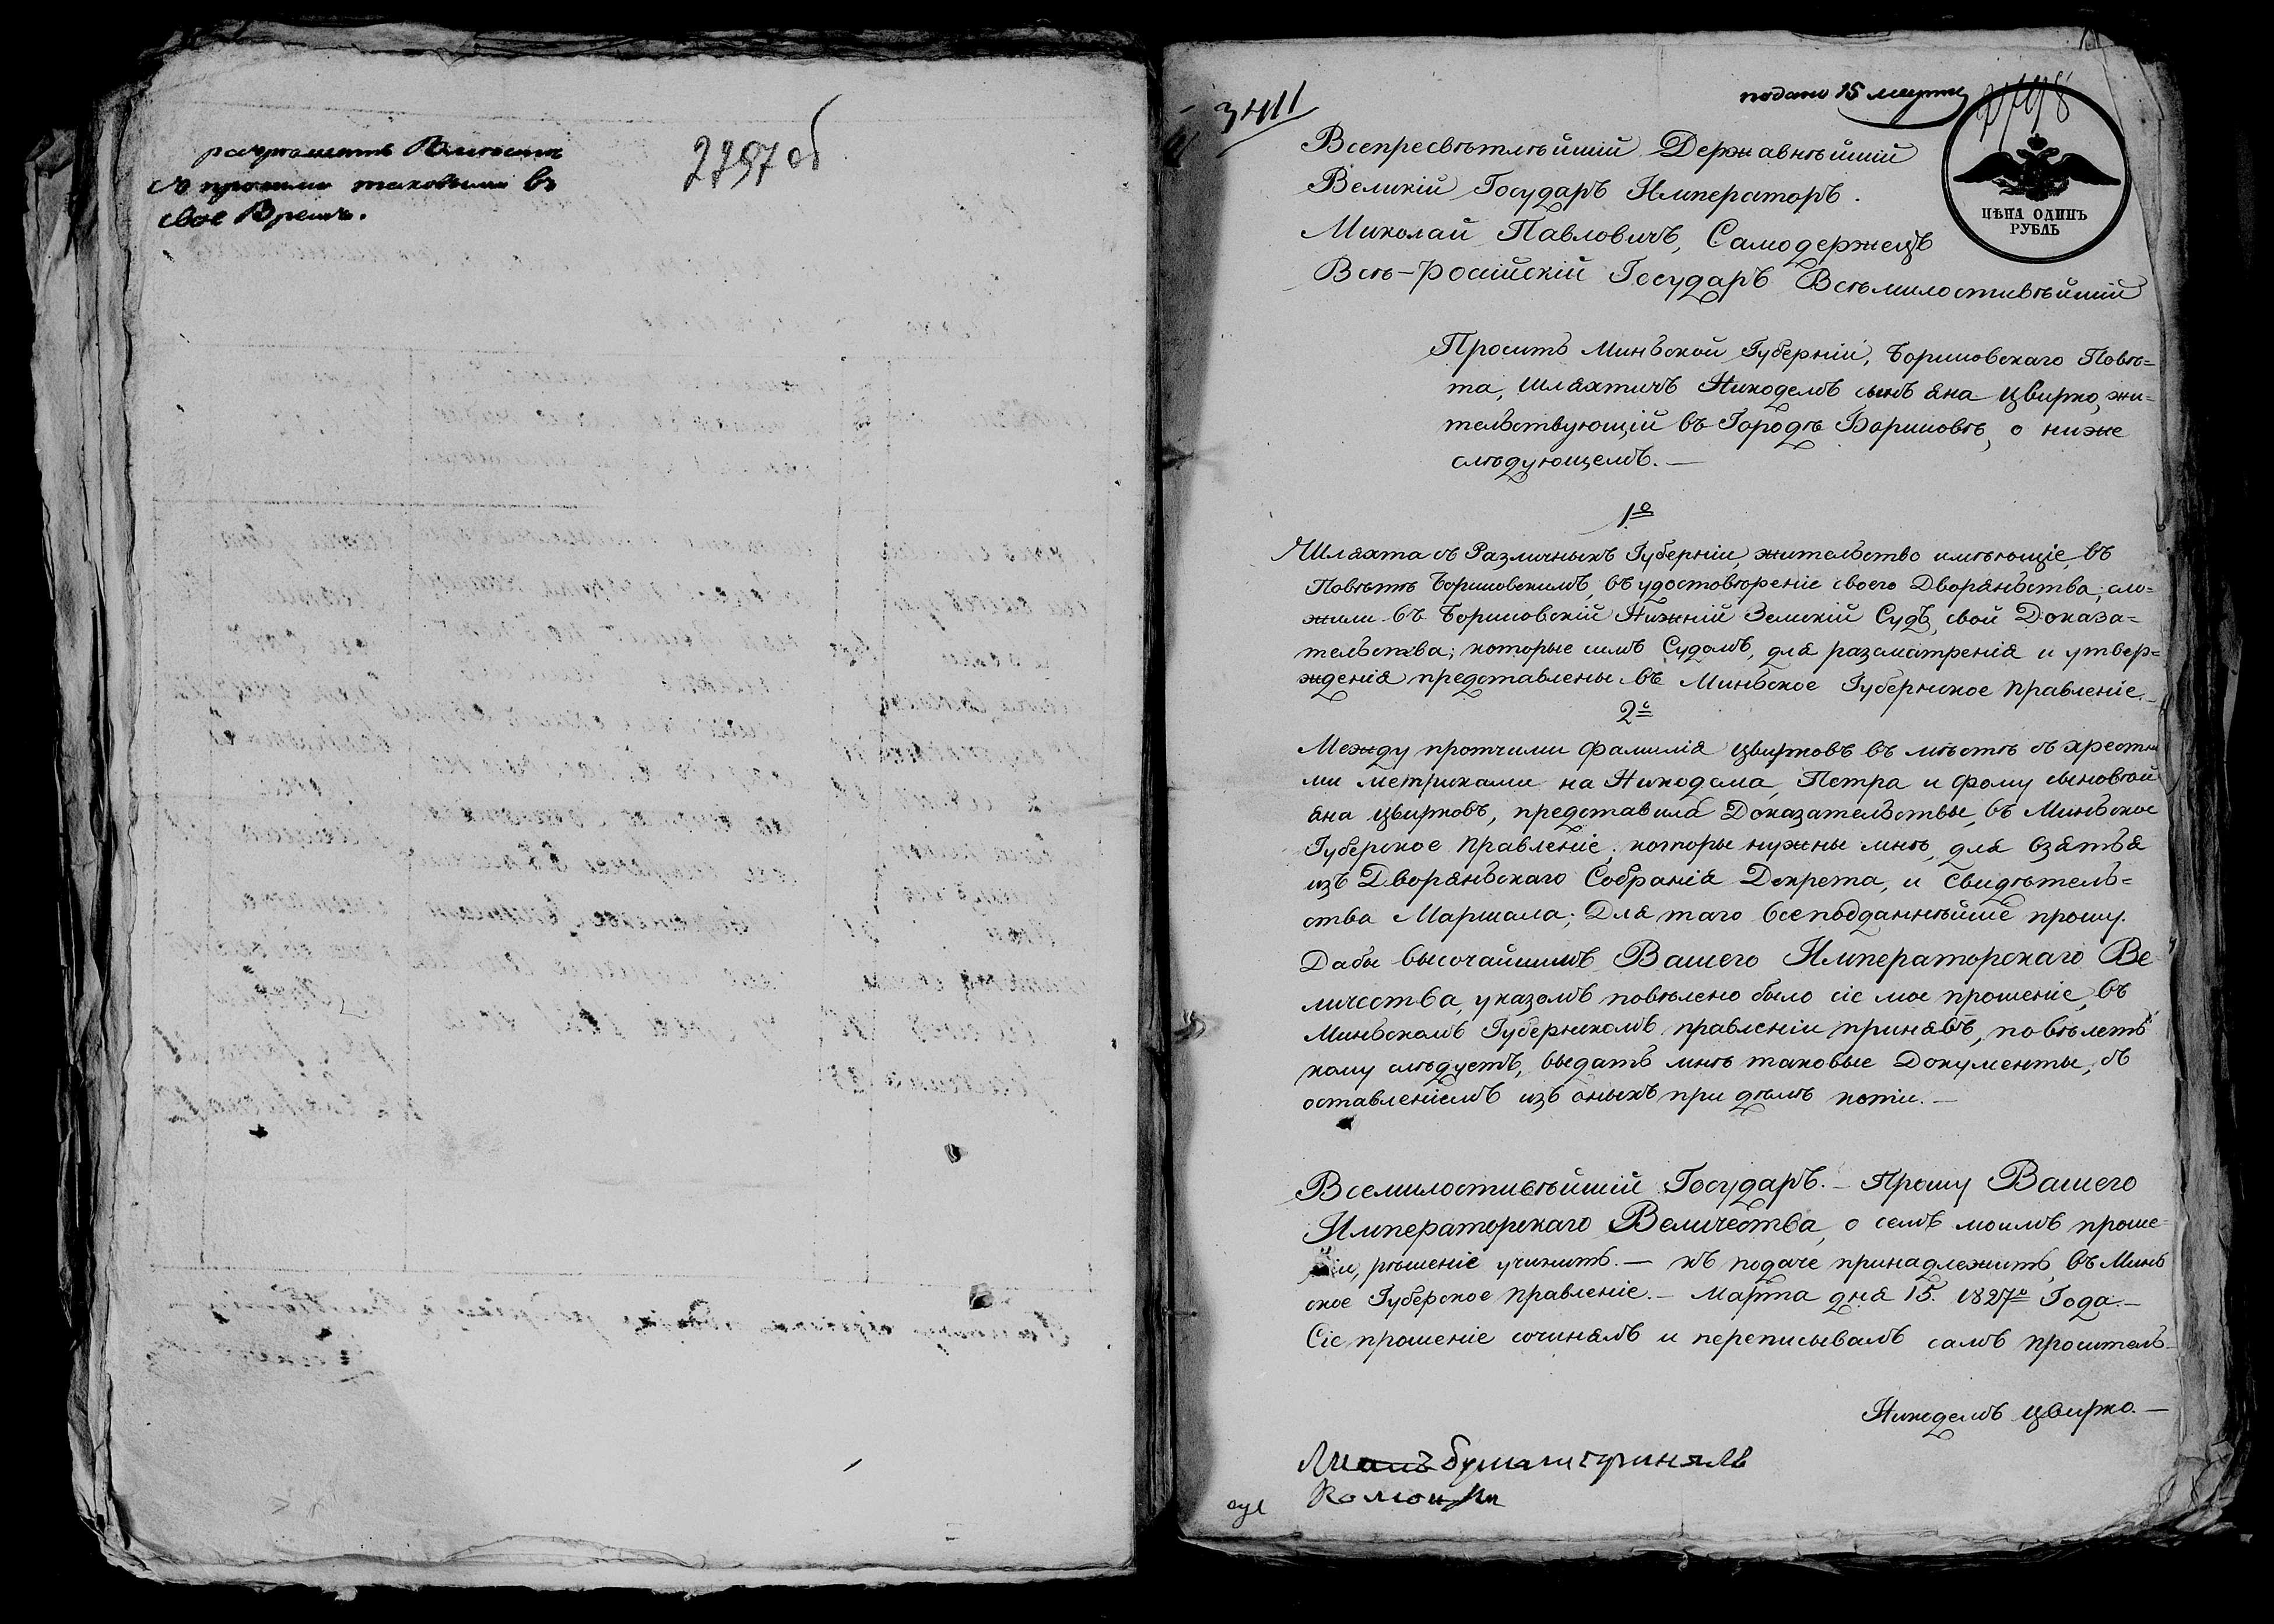 разсмотреть вместе
съ прочими таковыми въ
свое время.
2797 об
3411
подано 15 марта
2798
ЦѢНА ОДИНЪ
РУБЛЬ
Всепресвѣтлѣйшій Державнѣйшій
Великій Государъ Императоръ.
Николай Павловичъ, Самодержецъ
Всѣ-Російскій Государъ Всѣмилостивѣйшій
Проситъ Минъской Губерніи, Борисовскаго Повѣ=
та, Шляхтичъ Никодемъ сынъ Яна Цвирко, жи=
тельствующій въ Городѣ Борисовѣ, о ниже
слѣдующемъ. —
1.о
Шляхта съ Различныхъ Губерніи, жительство имѣющіе, въ
Повѣтѣ Борисовскимъ, въ удостовѣреніе своего Дворянъства; сло=
жили въ Борисовскій Нижній Земскій Судъ, свой Доказа=
тельства; которые симъ Судомъ, для разсматренія и утвер=
жденія представлены въ Минъское Губернское Правленіе.
2.о
Между протчими фамилія Цвирковъ въ мѣстѣ съ хрестны
ми метриками на Никодема, Петра и Фому сыновѣй
Яна Цвирковъ, представила Доказательствы, въ Минъское
Губерское Правленіе; которы нужны мнѣ, для взятья
изъ Дворянъскаго Собранія Декрета, и Свидѣтель=
ства Маршала; Для таго всеподданнѣйше прошу.
Дабы высочайшимъ Вашего Императорскаго Ве
личества, указомъ повѣлено было сіе мое прошеніе, въ
Минъскомъ Губернскомъ правленіи принявъ, повѣлеть
кому слѣдуетъ, выдать мнѣ таковые Документы, съ
оставленіемъ изъ оныхъ при дѣлѣ копіи. —
Всемилостивѣйшій Государъ. — Прошу Вашего
Императорскаго Величества, о семъ моимъ проше=
ніи, рѣшеніе учинить. — къ подаче принадлежитъ, въ Минъ
ское Губерское Правленіе. — Марта дня 15. 1827о Года. —
Сіе прошеніе сочинялъ и переписывалъ самъ проситель —
Никодемъ Цвирко. —
бумаги принялъ